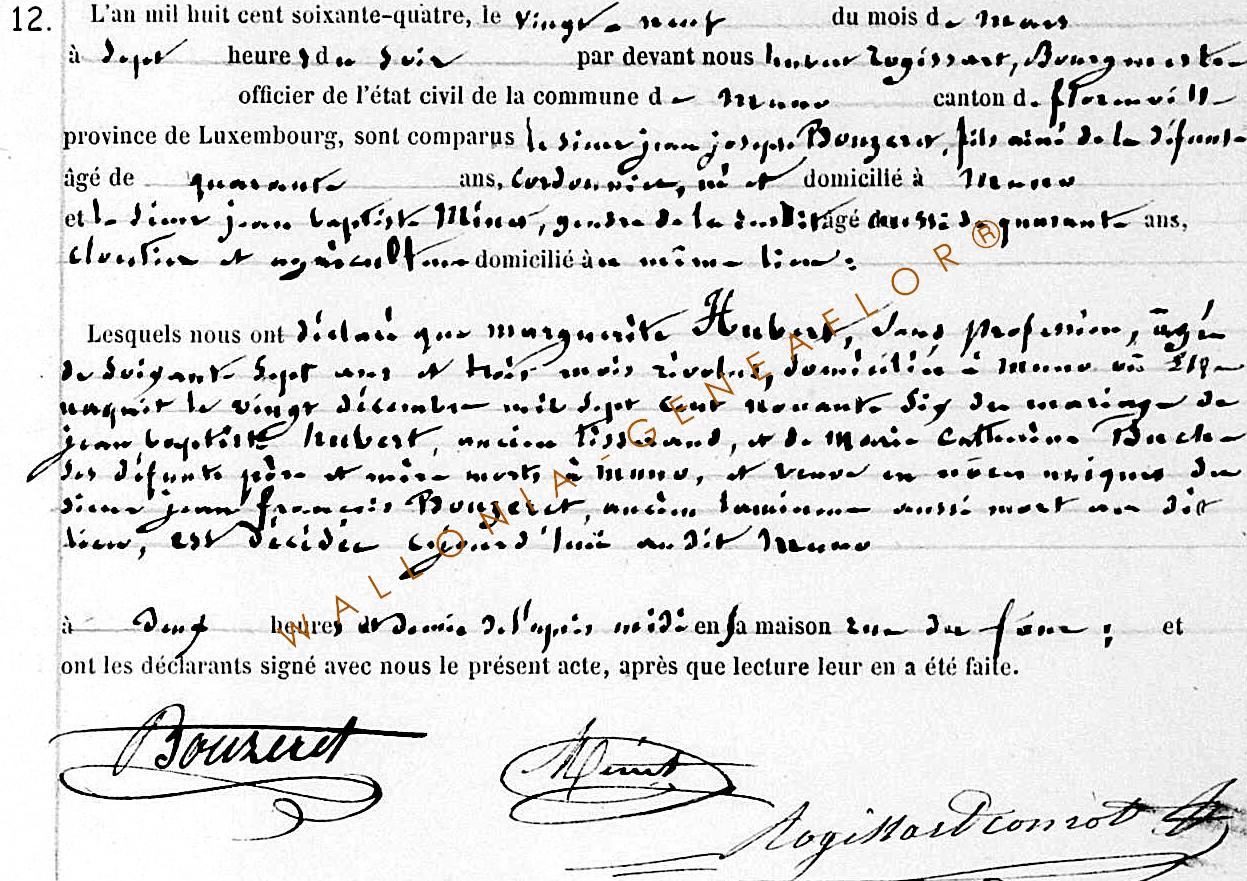 12. L'an mil huit cent soixante-quatre, le vingt-neuf du mois de Mars
à Sept heures du Soir par devant nous hubert Rogissart, Bourgmestre
officier de l'état civil de la commune de Muno canton de florenville
province de Luxembourg, sont comparus le sieur jean joseph Bouzeret, fils ainé de la défunte
âgé de quarante ans, cordonnier, né et domicilié à Muno
et le sieur jean baptiste gendre de la âgé aussi de quarante ans,
cloutier et agriculteur domicilié au même lieu;
Lesquels nous ont déclaré que marguerite Hubert, sans profession, âgée
de soixante Sept ans et trois mois révolus, domiciliée à muno où Elle
naquit le vingt décembre mil Sept cent nonante Six du mariage de
jean baptiste hubert, ancien tisserand, et de Marie Catherine
les défunts père et mère morts à muno, et veuve en nôces uniques du
sieur jean françois Bouzeret, ancien aussi mort au dit
lieu, est décédée aujourd'hui au dit Muno
à deux heures et demie de l'après midi en sa maison rue du four; et
ont les déclarants signé avec nous le présent acte, après que lecture leur en a été faite.
Bouzeret
Rogissart
WALLONIA - GENEAFLOR®